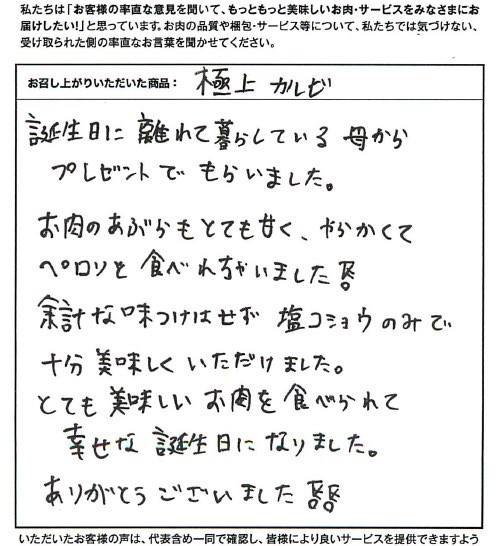 私たちは「お客様の率直な意見を聞いて、もっともっと美味しいお肉・サービスをみなさまにお
届けしたい!」と思っています。お肉の品質や梱包・サービス等について、私たちでは気づけない、
受け取られた側の率直なお言葉を聞かせてください。
お召し上がりいただいた商品： 極上 カルビ
誕生日に 離れて暮らしている 母から
プレゼントで もらいました。
お肉のあぶらもとても甘く、やらかくて
ペロリと 食べれちゃいました!!
余計な味つけはせず 塩コショウのみで
十分 美味しくいただけました。
とても 美味しい お肉を 食べられて
幸せな 誕生日に なりました。
ありがとうございました!!
いただいたお客様の声は、代表含め一同で確認し、皆様により良いサービスを提供できますよう